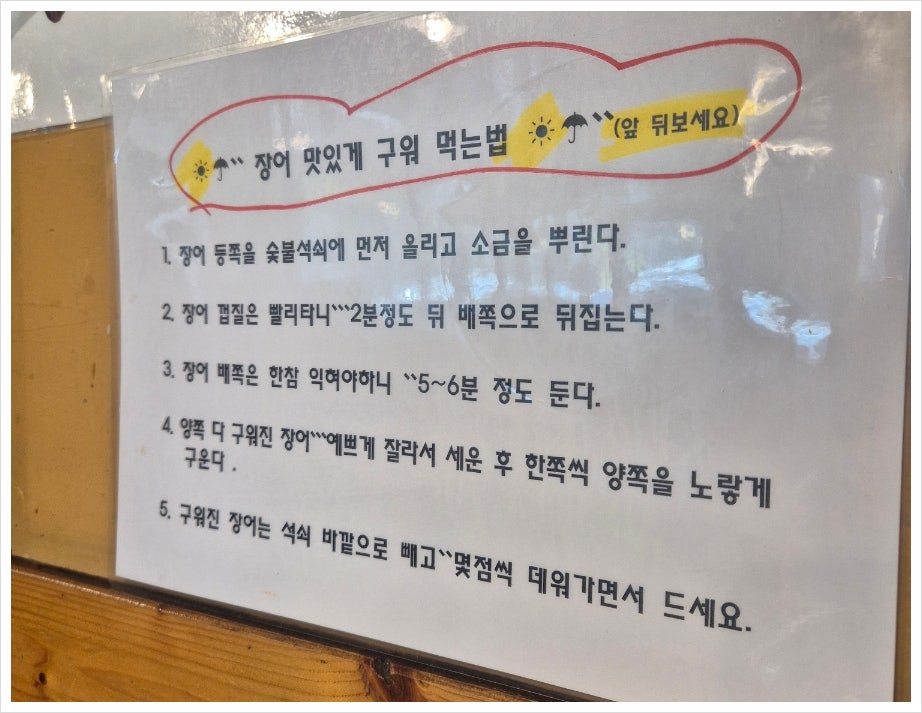 ☀☂`` 장어 맛있게 구워 먹는법 ☀☂``(앞 뒤보세요)
1. 장어 등쪽을 숯불석쇠에 먼저 올리고 소금을 뿌린다.
2. 장어 껍질은 빨리타니```2분정도 뒤 배쪽으로 뒤집는다.
3. 장어 배쪽은 한참 익혀야하니 ``5~6분 정도 둔다.
4. 양쪽 다 구워진 장어```예쁘게 잘라서 세운 후 한쪽씩 양쪽을 노랗게
구운다 .
5. 구워진 장어는 석쇠 바깥으로 빼고``몇점씩 데워가면서 드세요.